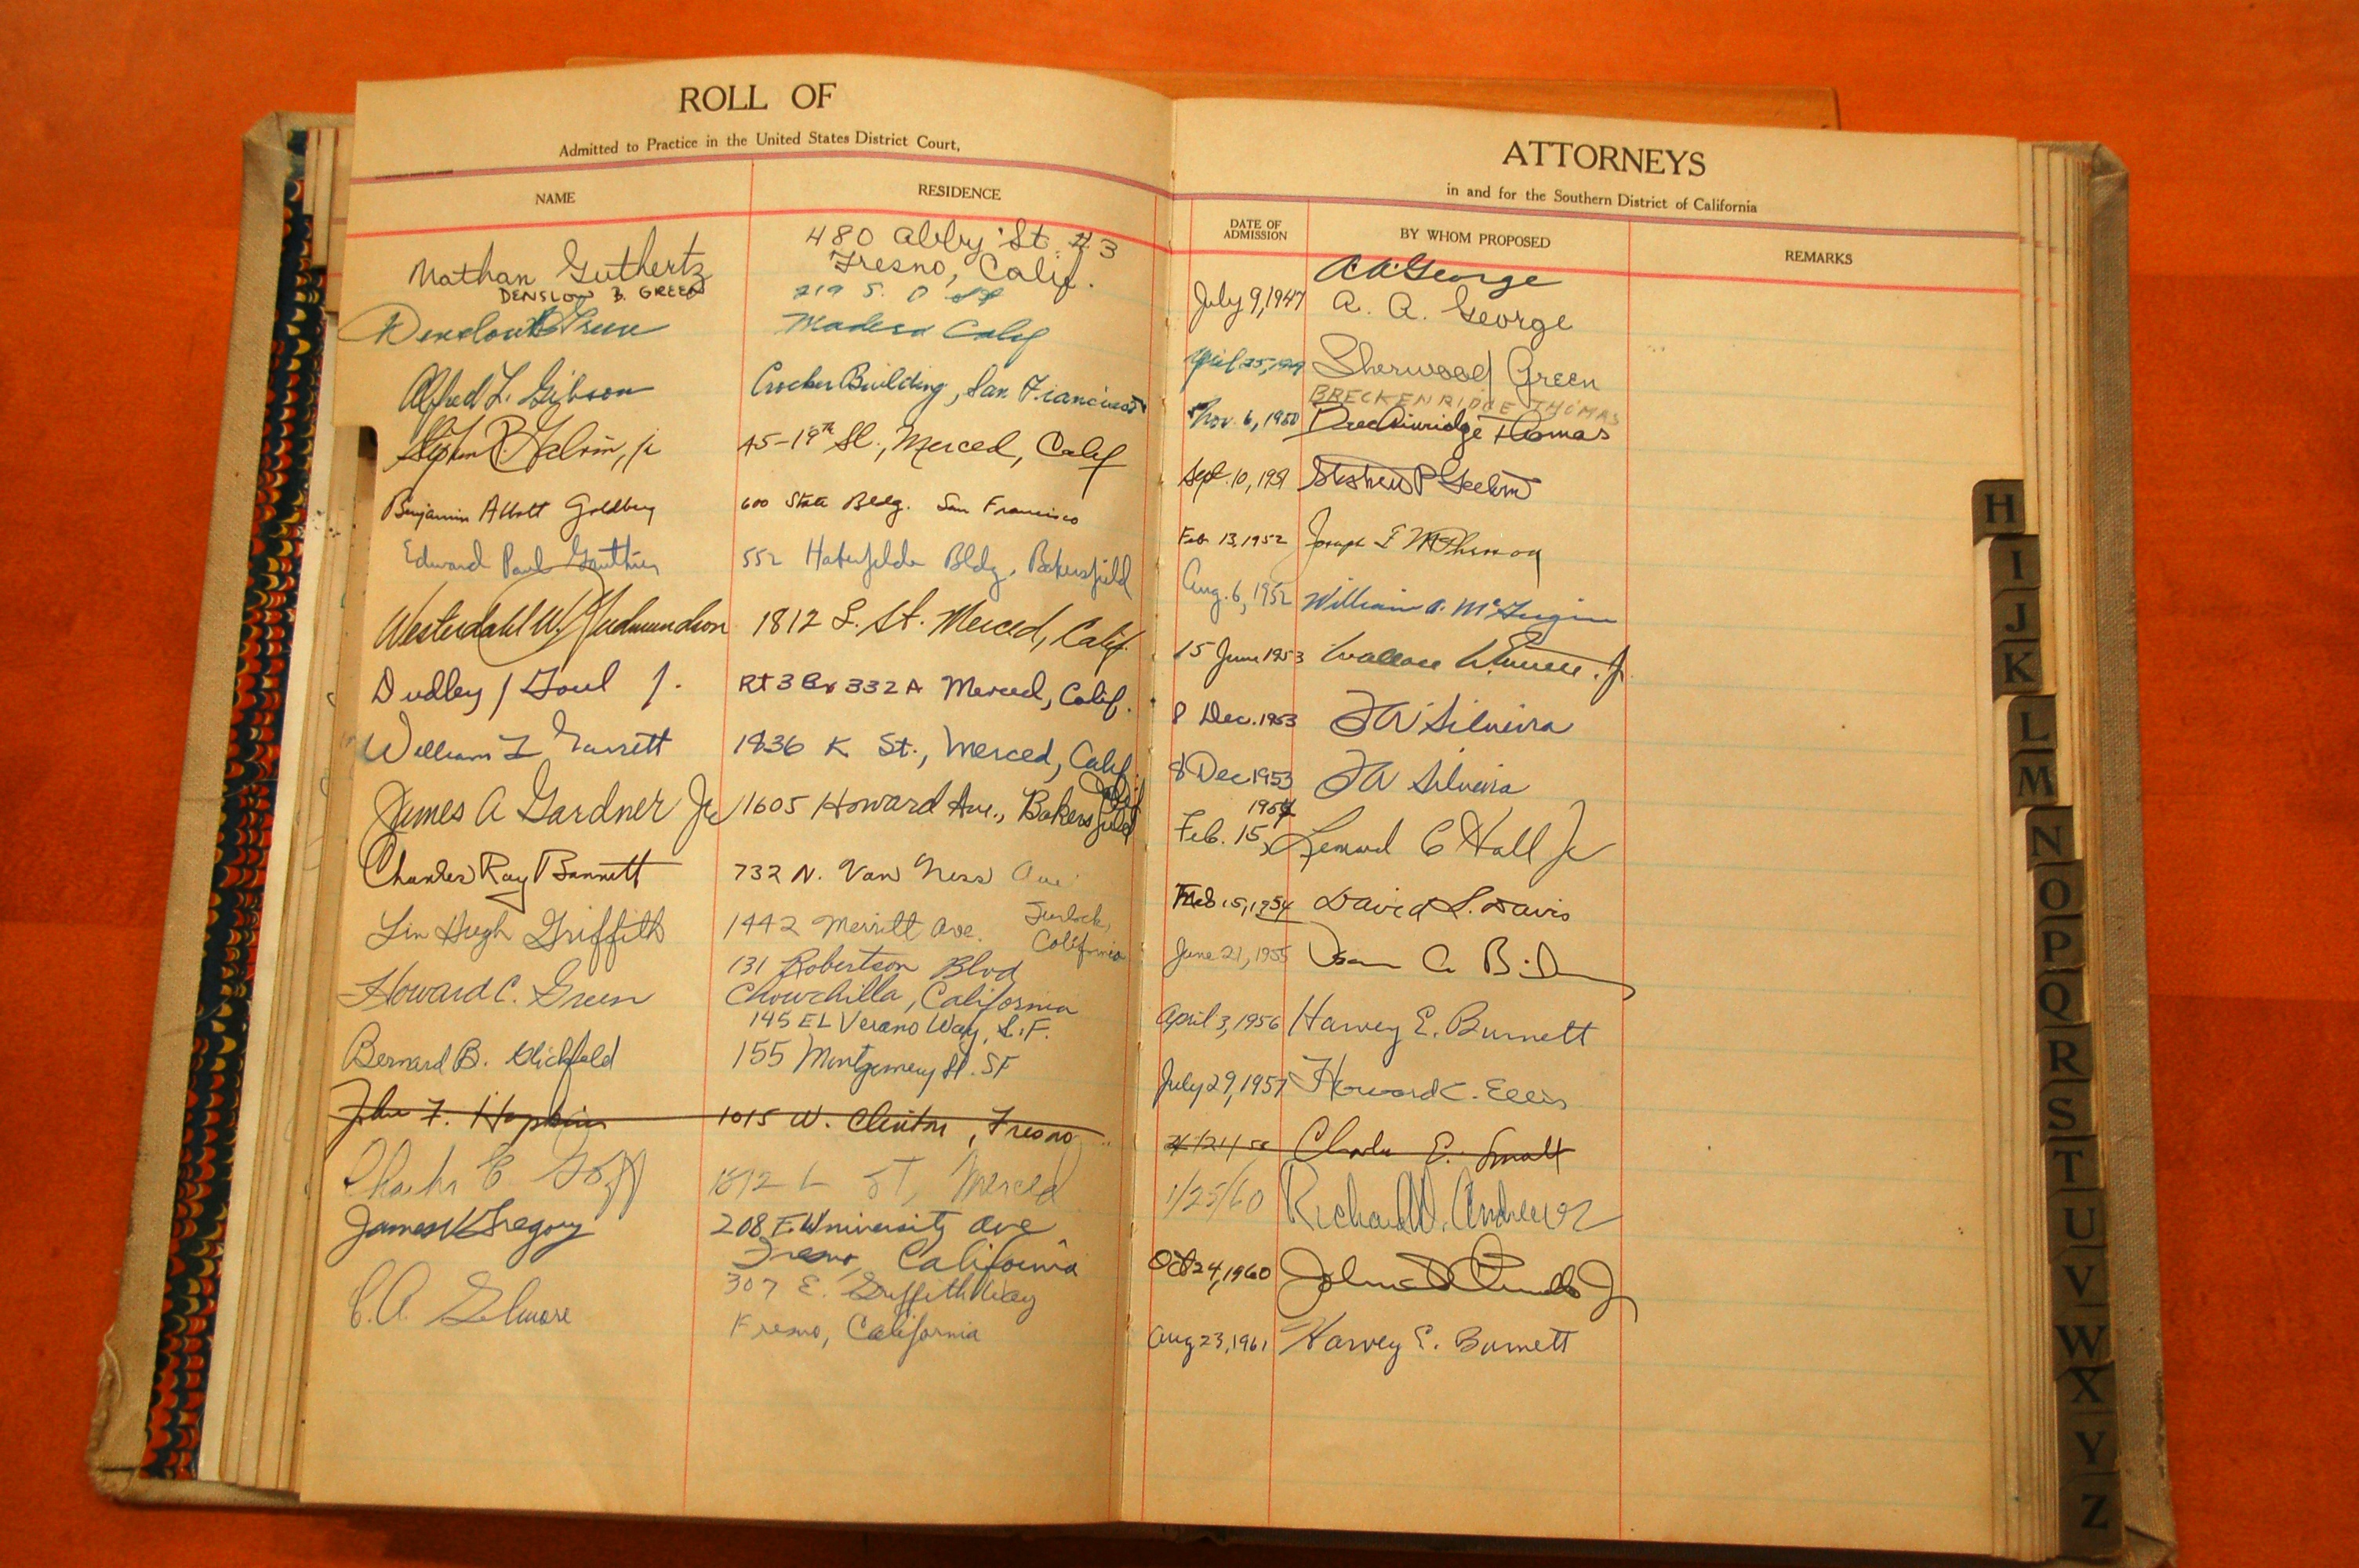 ROLL OF
Admitted to Practice in the United States District Court,
NAME
RESIDENCE
Nathan Guthertz
480 Abby St. #3
Fresno, Calif.
DENSLOW B. GREEN
Denslow B Green
219 S. D St
Madera Calif
Alfred L. Gibson
Crocker Building, San Francisco
Stephen P. Galvin, jr
45-19th St., Merced, Calif
Benjamin Abbott Goldberg
600 State Bldg. San Francisco
Edward Paul Gauthier
552 Haberfelde Bldg, Bakersfield
Westerdahl W. Gudmundson
1812 L. St. Merced, Calif.
Dudley
Rt 3 Bx 332 A Merced, Calif.
William L Garrett
1836 K St., Merced, Calif.
James A Gardner Jr
1605 Howard Ave., Bakersfield
Calif
Charles Ray
732 N. Van Ness Ave
Lin Hugh Griffith
1442 Merritt Ave. Turlock,
California
Howard C. Green
131 Robertson Blvd
Chowchilla, California
145 El Verano Way, S.F.
Bernard B. Glickfeld
155 Montgomery St. SF
John F. Hopkins
1015 W. Clinton, Fresno
Charles E Goff
1812 L ST, Merced
James K Gregory
208 E. University Ave
Fresno, California
C.A. Gilmore
307 E. Griffith Way
Fresno, California
ATTORNEYS
in and for the Southern District of California
DATE OF
ADMISSION
BY WHOM PROPOSED
REMARKS
A.A. George
July 9, 1947 A. A. George
April 25, 1949 Sherwood Green
BRECKENRIDGE THOMAS
Nov. 6, 1950 Breckinridge Thomas
Sept. 10, 1951 Stephen P Galvin
Feb 13, 1952 Joseph
Aug. 6, 1952 William A.
15 June 1953 Wallace
8 Dec. 1953 F W Silveira
8 Dec 1953 F W Silveira
1954
Feb. 15, C Hall Jr
Feb 15, 1954 David L. Davis
June 21, 1955
April 3, 1956 Harvey E. Burnett
July 29, 1957 Howard C. Ellis
Charles E. Small
1/25/60 Richard W. Andrews
Oct 24, 1960
Aug 23, 1961 Harvey E. Burnett
H
I
J
K
L
M
N
O
P
Q
R
S
T
U
V
W
X
Y
Z